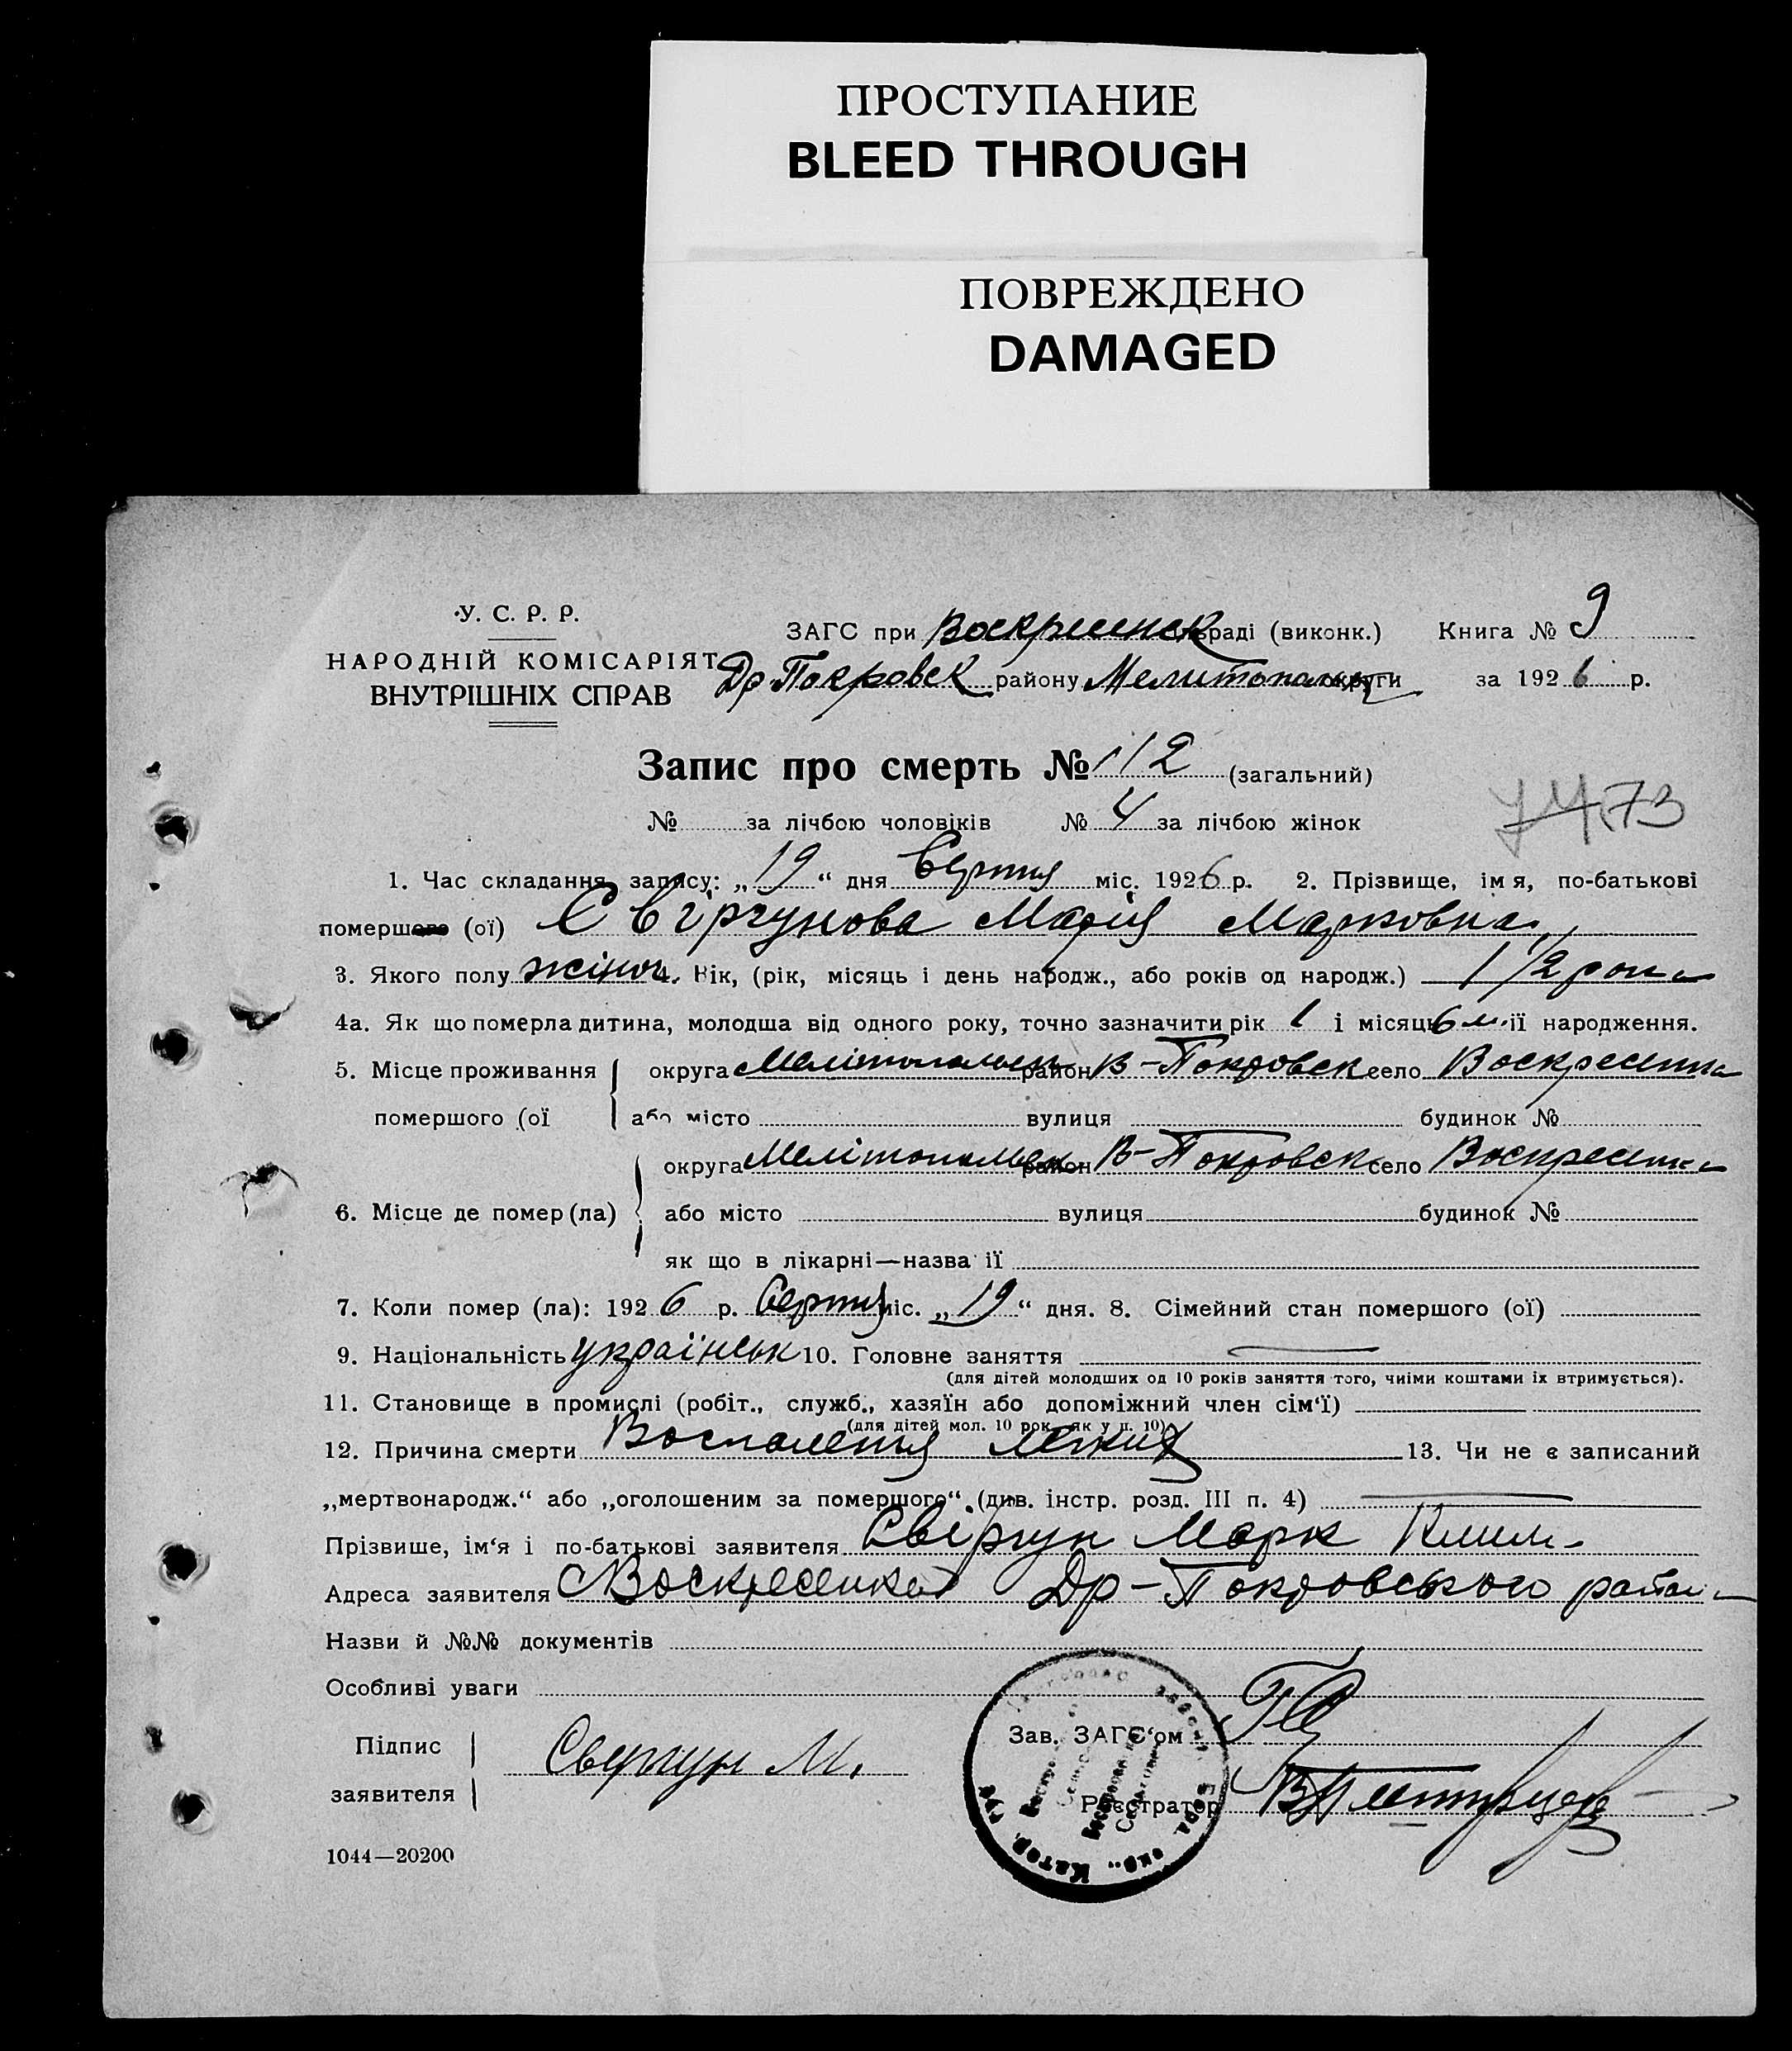 ПРОСТУПАНИЕ
BLEED THROUGH
ПОВРЕЖДЕНО
DAMAGED
У. С. Р. Р.
НАРОДНІЙ КОМІСАРІЯТ
ВНУТРІШНІХ СПРАВ
ЗАГС при Воскресенск раді (виконк.) Книга № 9
Др Покровск району Мелитопольск округи за 1926 р.
Запис про смерть № 112 (загальний)
№ за лічбою чоловіків № 4 за лічбою жінок
73
1. Час складання запису: „19“ дня Серпня міс. 1926 р. 2. Прізвище, імя, по-батькові
помершого (ої) Свіргунова Марія Марковна
3. Якого полу жіноч. 4. Вік, (рік, місяць і день народж., або років од народж.) 1 1/2 рока
4а. Як що померла дитина, молодша від одного року, точно зазначити рік 1 і місяць 6 м. її народження.
5. Місце проживання округа Мелітопольск район В-Покровск село Воскресенка
помершого (ої або місто вулиця будинок №
округа Мелітопольск район В-Покровск село Воскресенка
6. Місце де помер (ла) або місто вулиця будинок №
як що в лікарні—назва її
7. Коли помер (ла): 1926 р. Серпня міс. „19“ дня. 8. Сімейний стан помершого (ої)
9. Національність українськ 10. Головне заняття
(для дітей молодших од 10 років заняття того, чиїми коштами їх втримується).
11. Становище в промислі (робіт., служб., хазяїн або допоміжний член сім‘ї)
(для дітей мол. 10 рок. як у п. 10)
12. Причина смерти Воспаления легких 13. Чи не є записаний
„мертвонародж.“ або „оголошеним за помершого“. (див. інстр. розд. III п. 4)
Прізвише, ім‘я і по-батькові заявителя Свіргун Марк Клим.
Адреса заявителя с Воскресенка Др-Покровського району
Назви й №№ документів
Особливі уваги
Підпис
заявителя Свергун М.
Зав. ЗАГС‘ом
Реєстратор
1044—20200